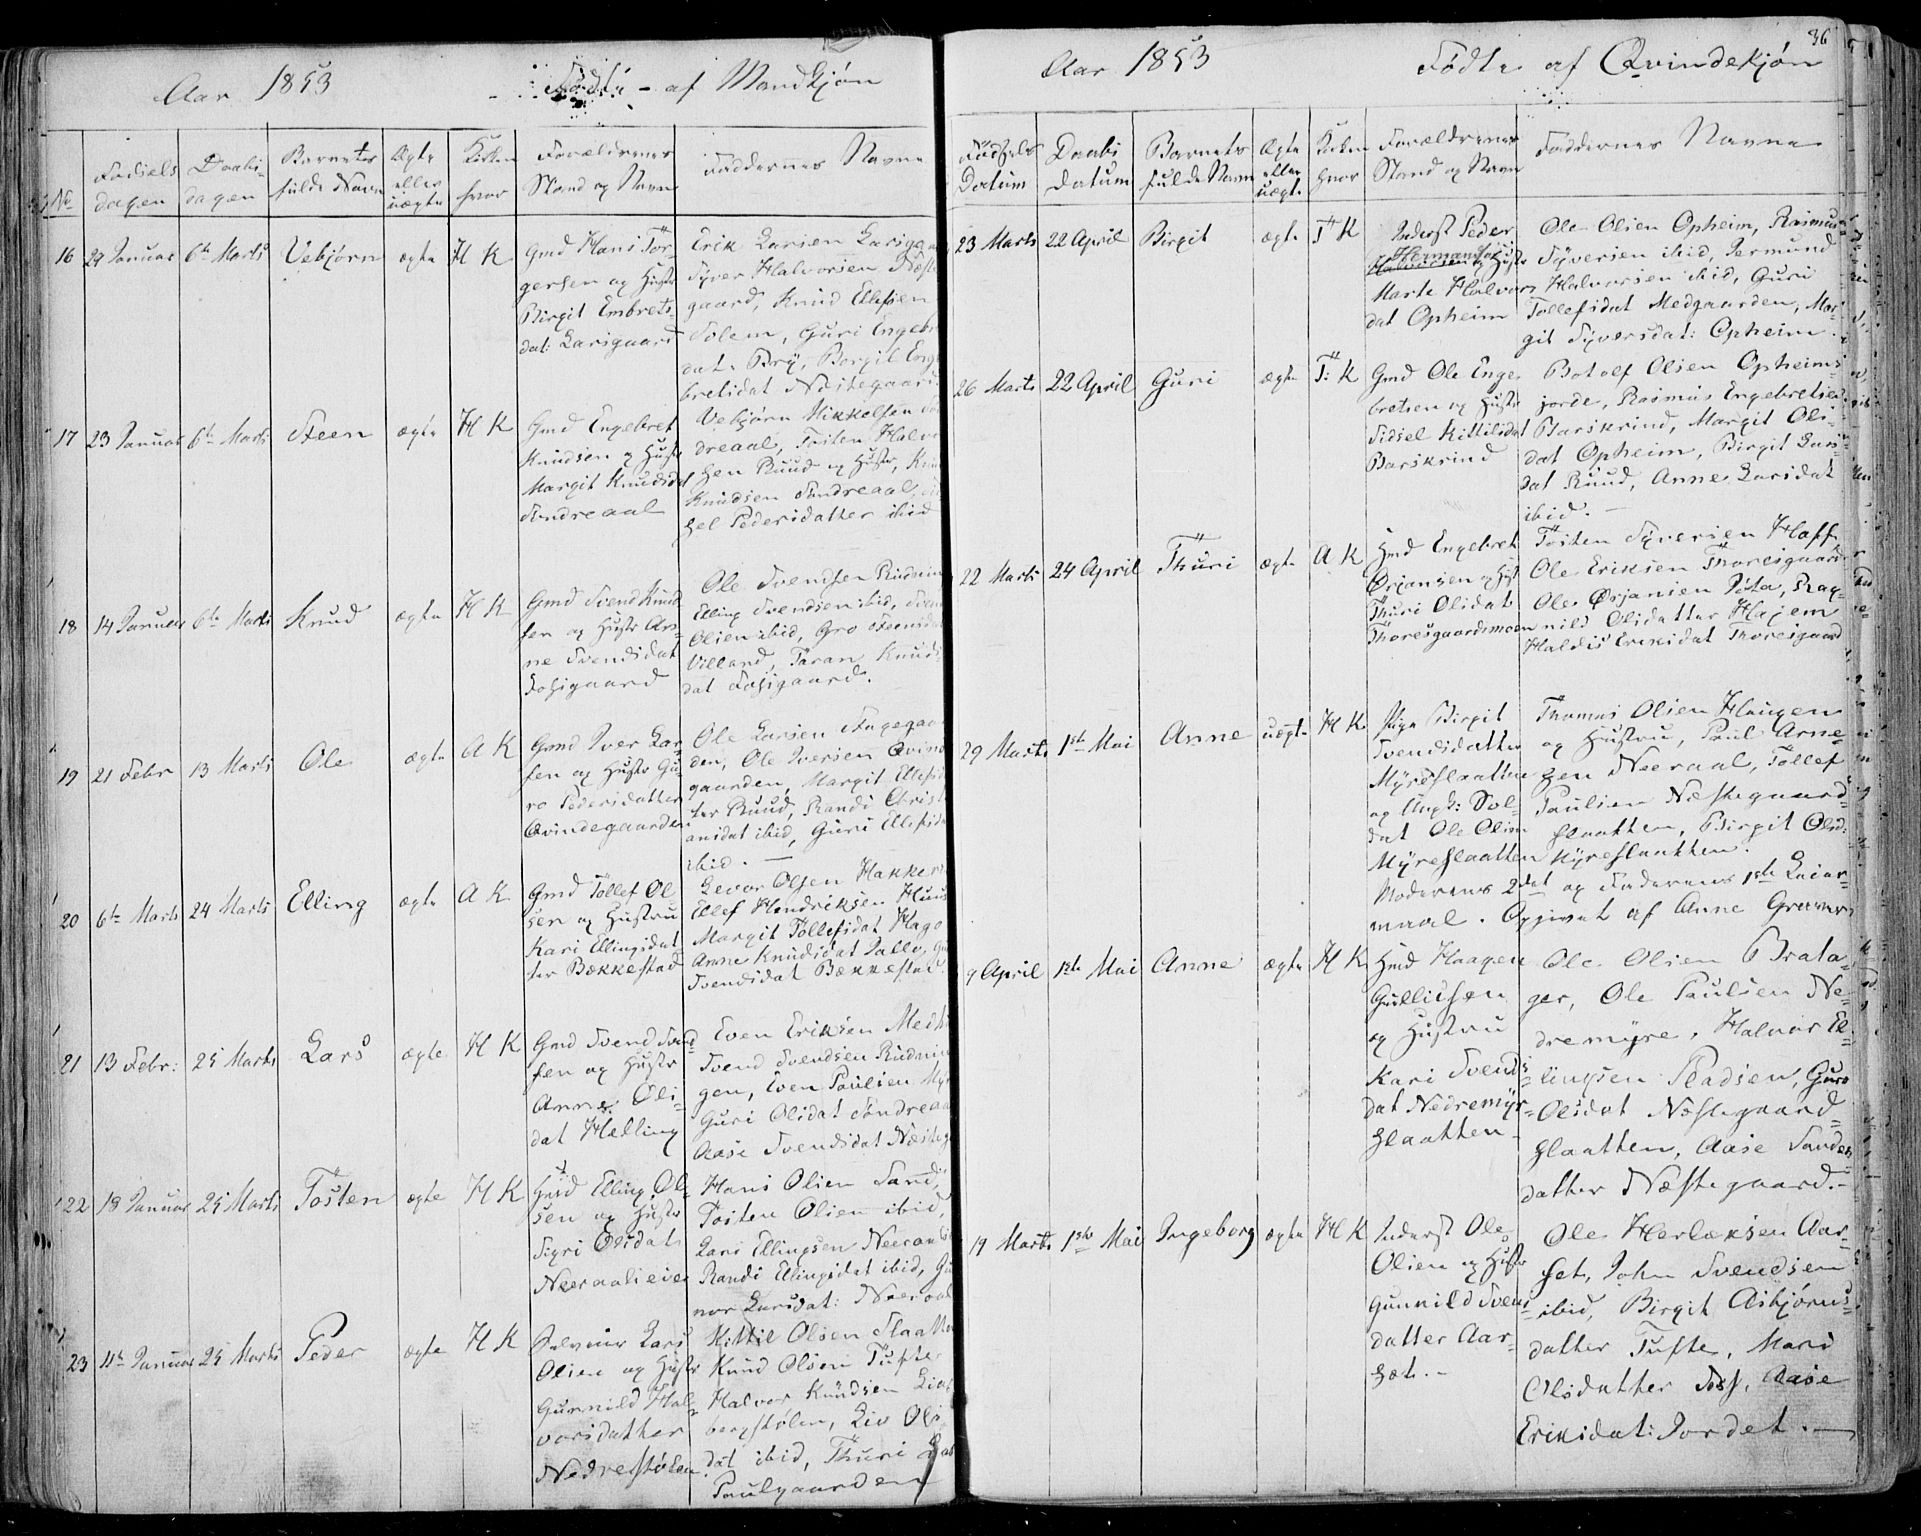 Aar 1853 Fødte af Mandkjøn
No
Fødsels
dagen
Daabs-
dagen
Barnets
fulde Navn
Ægte
eller
uægte
Kirken
hvor
Forældrenes
Stand og Navn
Faddernes Navne
16 29 Januar 6te Marts Vebjørn ægte H K
Gmd Hans Tor-
gersen og Hustr
Birgit Embrets-
dat: Larsgaard
Erik Larsen Larsgaa
Syver Halvorsen Næste
gaard, Knud Ellefsen
Solem, Guri Engebr
dat. Bry, Birgit Enge
bretsdat Næstegaard
17 23 Januar 6te Marts Steen ægte H K
Gmd Engebret
Knudsen og Hustr
Margit Knudsdat
Sundreaal
Vebjørn Mikkelsen Sun
dreaal, Tosten Halvo
sen Ruud og Hustr, Knud
Knudsen Sundreaal,
sel Pedersdatter ibid
18 14 Januar 6te Marts Knud ægte H K
Gmd Svend Knud
sen og Hustr An-
ne Svendsdat
Fosgaard
Ole Svendsen Rudnin
Elling Svendsen ibid, Svend
Olsen ibid, Gro Steensda
Villand, Taran Knuds
dat Fosgaard.
19 21 Febr 13 Marts Ole ægte A K
Gmd Iver Lar
sen og Hustr Gu
ro Pedersdatter
Qvindegaarden
Ole Larsen Fagegaar
den, Ole Iversen Qvinde
gaarden, Margit Ellefsd
ter Ruud, Randi Christ
ansdat ibid, Guri Ellefsda
ibid. —
20 6te Marts 24 Marts Elling ægte A K
Gmd Tollef Ol
sen og Hustru
Kari Ellingsdat
ter Bækkestad
Levor Olsen Hakker
Ellef Hendriksen Huus
Margit Tollefsdat Hago
Anne Knudsdat Pallo,
Svendsdat Bækkestad
21 13 Febr: 25 Marts Lars ægte H K
Gmd Svend Svend-
sen og Hustr
Anne Ols-
dat Hælling
Even Eriksen Medh
Svend Svendsen Rudnin
gen, Even Paulsen Myr
Guri Olsdat Sundreaa
Aase Svendsdat Næsteg
22 18 Januar 25 Marts Tosten ægte H K
Hmd Elling Ol-
sen og Hustr
Sigri Olsdat
Neeraalseie
Hans Olsen Sand,
Tosten Olsen ibid,
Lars Ellingsen Neeraal
Randi Ellingsdat ibid, Gu
nor Larsdat: Neeraal
23 11te Januar 25 Marts Peder ægte H K
Selveier Lars
Olsen og Hustr
Gunnild Hal-
vorsdatter
Nedrestølen
Kittil Olsen Slaatten
Knud Olsen Tufte
Halvor Knudsen Lien
bergstølen, Liv Ols
dat ibid, Thuri Lars
Paulgaarden
Aar 1853 Fødte af Qvindekjøn
36
Fødsels
Datum
Daabs
Datum
Barnets
fulde Navn
Ægte
eller
uægte
Kirken
hvor
Forældrenes
Stand og Navn
Faddernes Navne
23 Marts 22 April Birgit ægte T K
Inderst Peder
Hermandsen
Halvorsen og Hustr
Marte Halvors
dat Opheim
Ole Olsen Opheim, Rasmus
Syversen ibid, Germund
Halvorsen ibid, Guri
Tollefsdat Medgaarden, Mar-
git Syversdat: Opheim.
26 Marts 22 April Guri ægte T: K
Gmd Ole Enge-
bretsen og Hustr
Sidsel Kittilsdat
Barskrind
Botolf Olsen Opheims-
jorde, Rasmus Engebretsen
Barskrind, Margit Ols-
dat Opheim, Birgit Lars-
dat Ruud, Anne Larsdat
ibid. —
22 Marts 24 April Thuri ægte A K
Hmd Engebret
Ørjansen og Hust
Thuri Olsdat
Thoresgaardsmoen
Tosten Syversen Hoff
Ole Eriksen Thoresgaard
Ole Ørjansen Pota, Rag-
nild Olsdatter Hajem
Haldis Eriksdat Thoresgaard
29 Marts 1ste Mai Anne uægte H K
Pige Birgit
Svendsdatter
Myreslaatten
og Ungk: Sol-
dat Ole Olsen
Myreslaatten
Thomas Olsen Haugen
og Hustru, Paul Arne-
sen Neeraal, Tollef
Paulsen Næstegaard-
slaatten, Birgit Olsd:
Myreslaatten.
Moderens 2det og Faderens 1ste Leier-
maal. Opgivet af Anne Grøner
9 April 1ste Mai Anne ægte H K
Hmd Haagen
Gullicksen
og Hustru
Kari Svends-
dat Nedremyr-
slaatten-
Ole Olsen Brata-
ger, Ole Paulsen Ne-
dremyre, Halvor El-
lingsen Pladsen, Guro
Olsdat Næstegaard-
slaatten, Aase Sander
datter Næstegaard.—
19 Marts 1ste Mai Ingeborg ægte H K
Inderst Ole
Olsen og Hustr
Gunnild Svens-
datter Aar-
set.—
Ole Herleksen Aar-
set, John Svendsen
ibid, Birgit Asbjørns-
datter Tufte, Mari
Olsdatter Foss, Aase
Eriksdat: Jordet.—